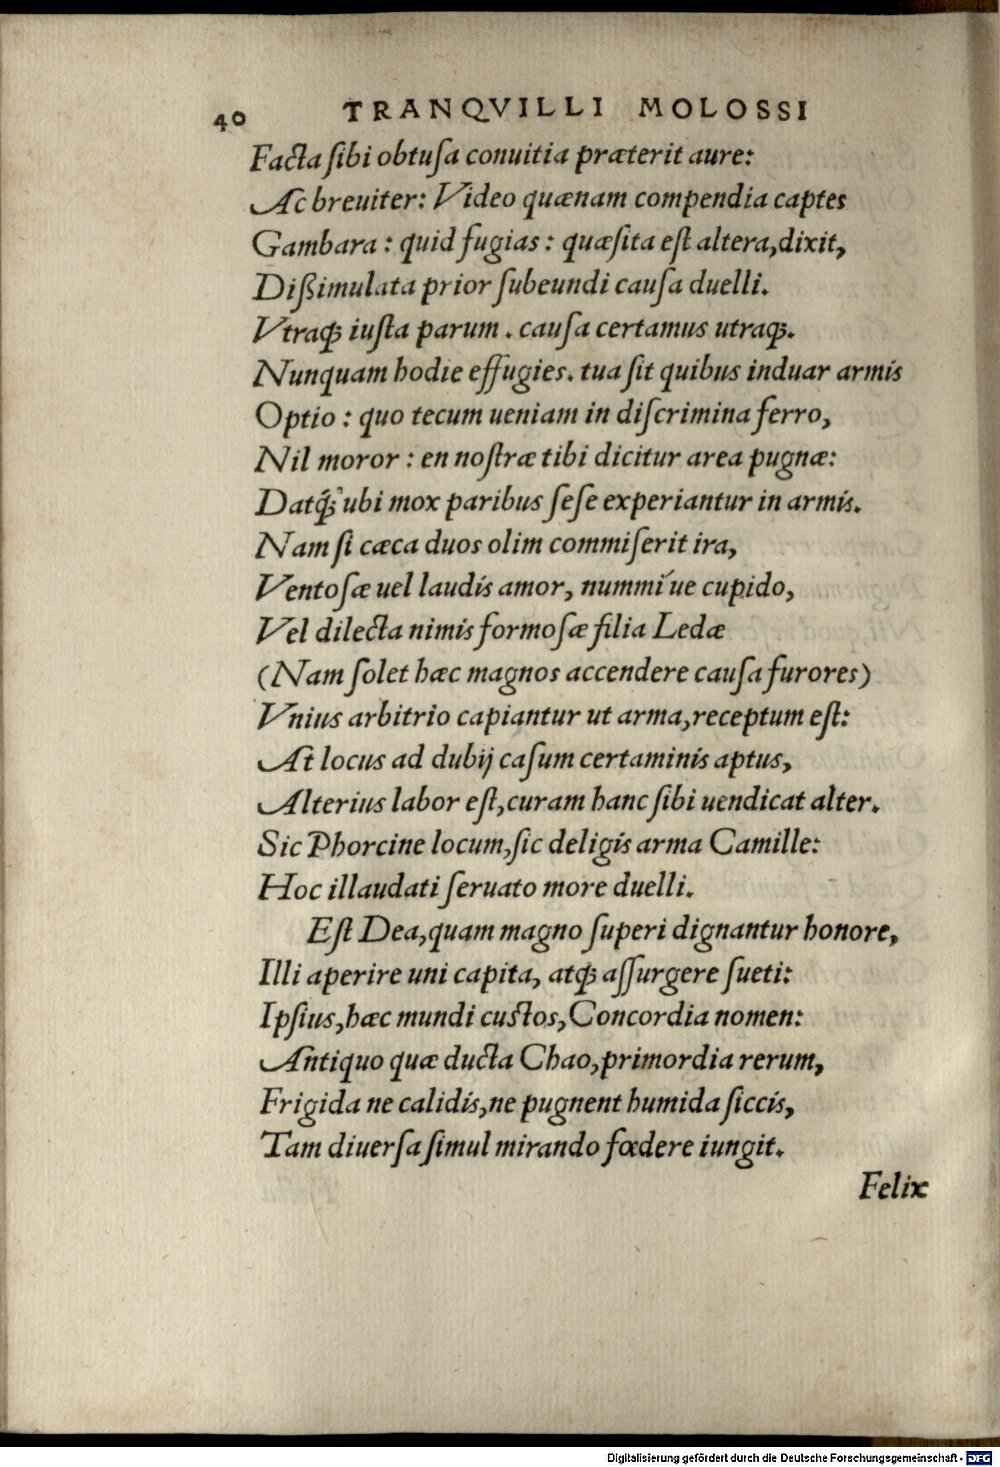 40 TRANQVILLI MOLOSSI
Facta ſibi obtuſa conuitia præterit aure:
Ac breuiter: Video quænam compendia captes
Gambara: quid fugias: quæſita eſt altera, dixit,
Dißimulata prior ſubeundi cauſa duelli.
Vtraq; iuſta parum. cauſa certamus utraq;.
Nunquam hodie effugies. tua ſit quibus induar armis
Optio: quo tecum ueniam in diſcrimina ferro,
Nil moror: en noſtræ tibi dicitur area pugnæ:
Datq́; ubi mox paribus ſeſe experiantur in armis.
Nam ſi cæca duos olim commiſerit ira,
Ventoſæ uel laudis amor, nummi´ue cupido,
Vel dilecta nimis formoſæ filia Ledæ
(Nam ſolet hæc magnos accendere cauſa furores)
Vnius arbitrio capiantur ut arma, receptum eſt:
At locus ad dubij caſum certaminis aptus,
Alterius labor eſt, curam hanc ſibi uendicat alter.
Sic Phorcine locum, ſic deligis arma Camille:
Hoc illaudati ſeruato more duelli.
Eſt Dea, quam magno ſuperi dignantur honore,
Illi aperire uni capita, atq; aſſurgere ſueti:
Ipſius, hæc mundi cuſtos, Concordia nomen:
Antiquo quæ ducta Chao, primordia rerum,
Frigida ne calidis, ne pugnent humida ſiccis,
Tam diuerſa ſimul mirando fœdere iungit.
Felix
Digitalisierung gefördert durch die Deutsche Forschungsgemeinschaft - DFG